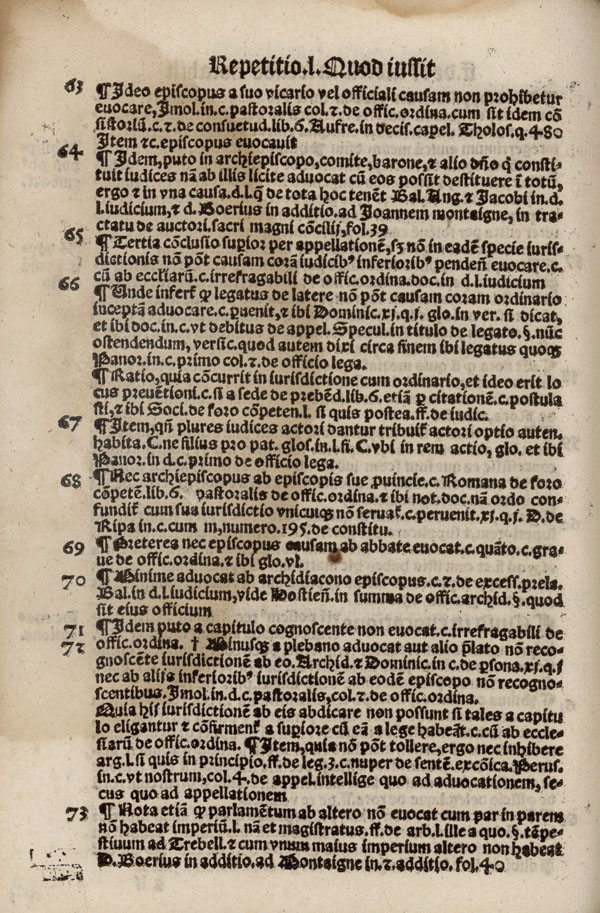 Repetitio.l.Quod iussit
63 ¶Ideo episcopus a suo vicario vel officiali causam non prohibetur
euocare, Imol.in.c.pastoralis col.⁊.de offic.ordina.cum sit idem cõ
sistoriũ.c.⁊.de consuetud.lib.6.Aufre.in decis.capel.Tholos.q.480
Item ⁊c.episcopus euocauit
64 ¶Idem,puto in archiepiscopo,comite,barone,⁊ alio dño q̃ consti-
tuit iudices nã ab illis licite aduocat cũ eos possit destituere ĩ totũ,
ergo ⁊ in vna causa.d.l.q̃ de tota hoc tenẽt Bal.Ang.⁊ Jacobi in.d.
l.iudicium,⁊ d.Boerius in additio.ad Joannem montaigne, in tra-
ctatu de auctori.sacri magni cõcilij,fol.39
65 ¶Tertia cõclusio supior per appellationẽ,sʒ nõ in eadẽ specie iuris-
dictionis nõ põt causam corã iudicibꝰ inferioribꝰ pendenẽ euocare.c.
cũ ab eccłiarũ.c.irrefragabili de offic.ordina.doc.in d.l.iudicium
66 ¶Unde infertꝛ ꝙ legatus de latere nõ põt causam coram ordinario
inceptã aduocare.c.ꝑuenit,⁊ ibi Dominic.xj.q.j. glo.in ver. si dicat,
et ibi doc.in.c.vt debitus de appel.Specul.in titulo de legato.§.nũc
ostendendum, versic.quod autem dixi circa finem ibi legatus quoqꝫ
Panor.in.c.primo col.⁊.de officio lega.
¶Ratio,quia cõcurrit in iurisdictione cum ordinario,et ideo erit lo
cus preuẽtioni.c.si a sede de prebẽd.lib.6.etiã ꝑ citationẽ.c.postula
sti,⁊ ibi Soci.de foro cõpeten.l. si quis postea.ff.de iudic.
67 ¶Item,qñ plures iudices actori dantur tribuitꝛ actori optio auten.
habita.C.ne filius pro pat.glos.in.l.fi.C.vbi in rem actio, glo. et ibi
Panor.in d.c.primo de officio lega.
68 ¶Nec archiepiscopus ab episcopis sue ꝓuincie.c.Romana de foro
cõpetẽ.lib.6. pastoralis de offic.ordina.⁊ ibi not.doc.nã ordo con-
funditꝛ cum sua iurisdictio vnicuiqꝫ nõ seruatꝛ.c.peruenit.xj.q.j. D.de
Ripa in.c.cum m,numero.195.de constitu.
69 ¶Preterea nec episcopus causam ab abbate euocat.c.quãto.c.gra-
ue de offic.ordina.⁊ ibi glo.vl.
70 ¶Minime aduocat ab archidiacono episcopus.c.⁊.de excess.prela.
Bal.in d.l.iudicium,vide Hostieñ.in summa de offic.archid.§.quod
sit eius officium
71 ¶Idem puto a capitulo cognoscente non euocat.c.irrefragabili de
72 offic.ordina. † Minusqꝫ a plebano aduocat aut alio p̃lato nõ reco-
gnoscẽte iurisdictionẽ ab eo.Archid.⁊ Dominic in.c.de ꝑsona.xj.q.j
nec ab alijs inferioribꝰ iurisdictionẽ ab eodẽ episcopo nõ recogno-
scentibus.Imol.in.d.c.pastoralis,col.⁊.de offic.ordina.
Quia his iurisdictionẽ ab eis abdicare non possunt si tales a capitu
lo eligantur ⁊ cõfirmentꝛ a supiore cũ eã a lege habeãt.c.cũ ab eccle-
siarũ de offic.ordina. ¶Item,quia nõ põt tollere,ergo nec inhibere
arg.l.si quis in principio.ff.de leg.3.c.nuper de sentẽ.excõica.Perus.
in.c.vt nostrum,col.4.de appel.intellige quo ad aduocationem, se-
cus quo ad appellationem
73 ¶Nota etiã ꝙ parlamẽtum ab altero nõ euocat cum par in parem
nõ habeat imperiũ.l. nã et magistratus.ff.de arb.l.ille a quo.§.tẽpe-
stiuum ad Trebell.⁊ cum vnum maius imperium altero non habeat
D.Boerius in additio.ad Montaigne in.⁊.additio. fol.40